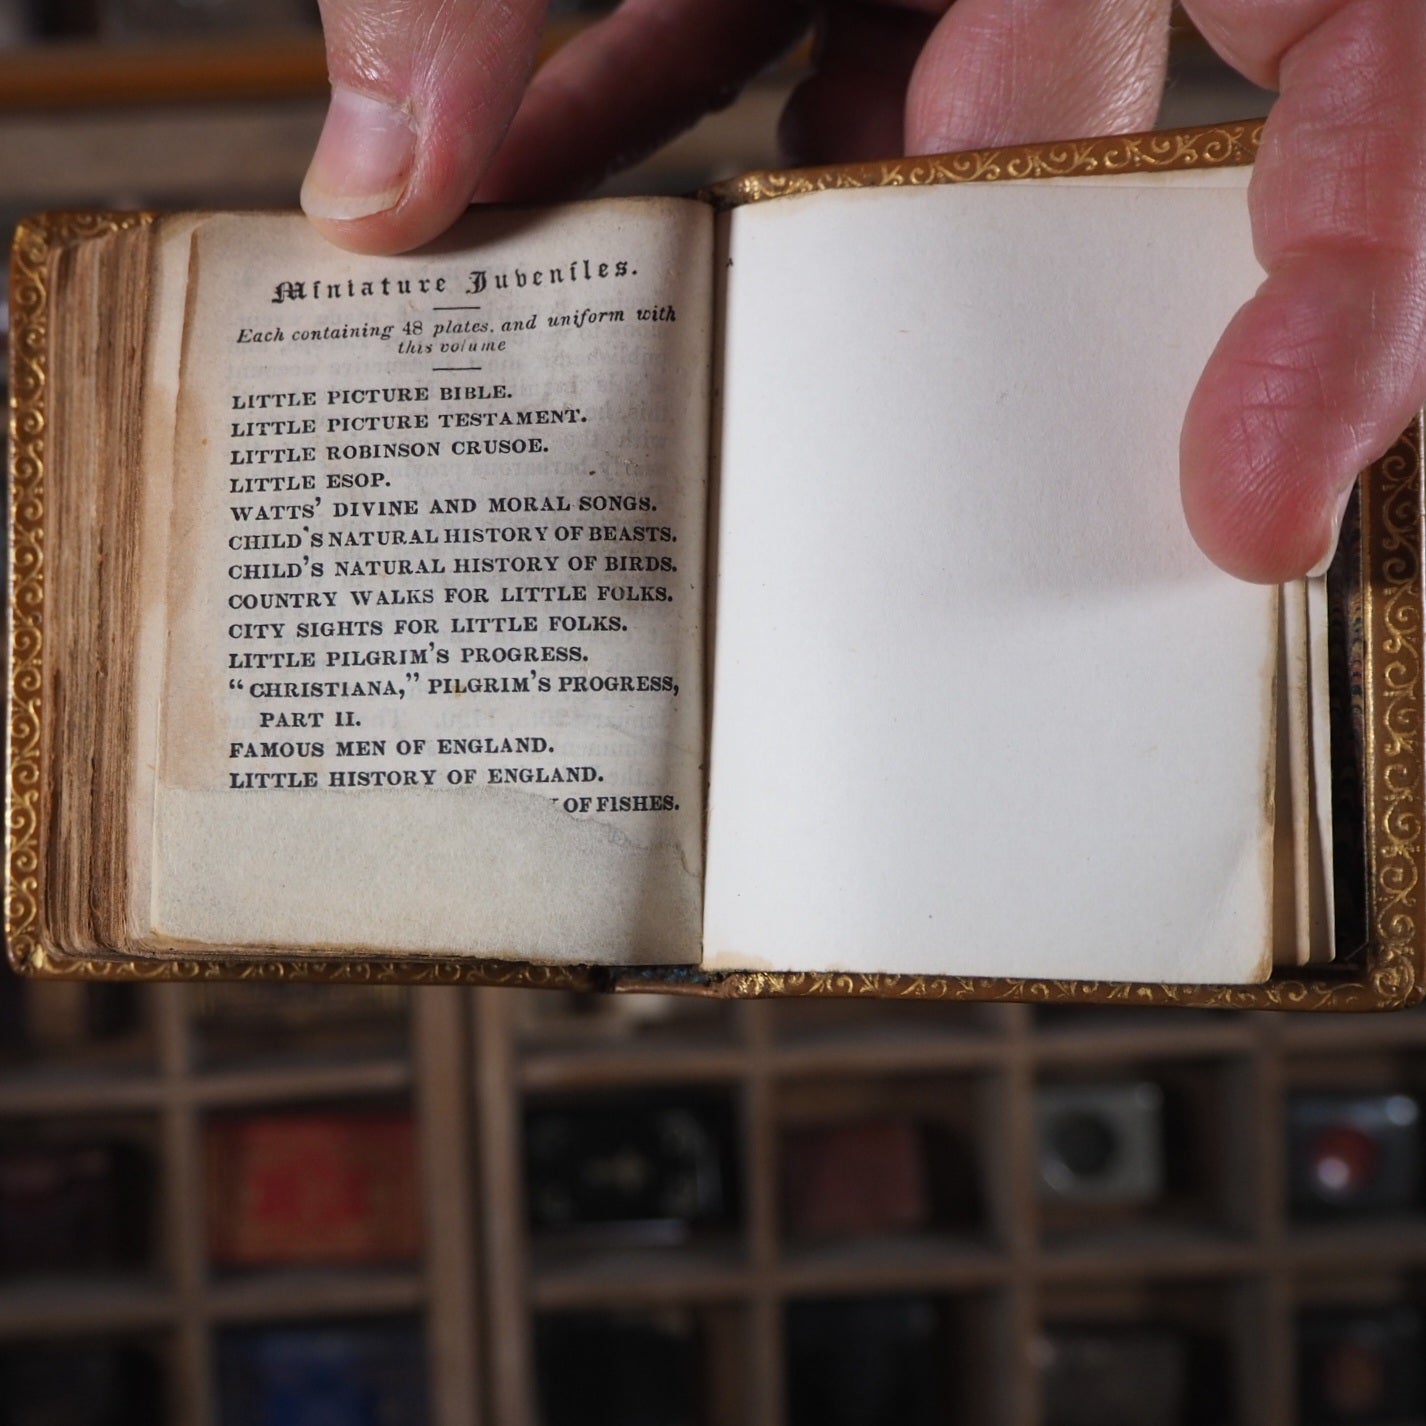 Miniature Juveniles.
Each containing 48 plates, and uniform with
this volume
LITTLE PICTURE BIBLE.
LITTLE PICTURE TESTAMENT.
LITTLE ROBINSON CRUSOE.
LITTLE ESOP.
WATTS' DIVINE AND MORAL SONGS.
CHILD'S NATURAL HISTORY OF BEASTS.
CHILD'S NATURAL HISTORY OF BIRDS.
COUNTRY WALKS FOR LITTLE FOLKS.
CITY SIGHTS FOR LITTLE FOLKS.
LITTLE PILGRIM'S PROGRESS.
“CHRISTIANA,” PILGRIM'S PROGRESS,
PART II.
FAMOUS MEN OF ENGLAND.
LITTLE HISTORY OF ENGLAND.
OF FISHES.